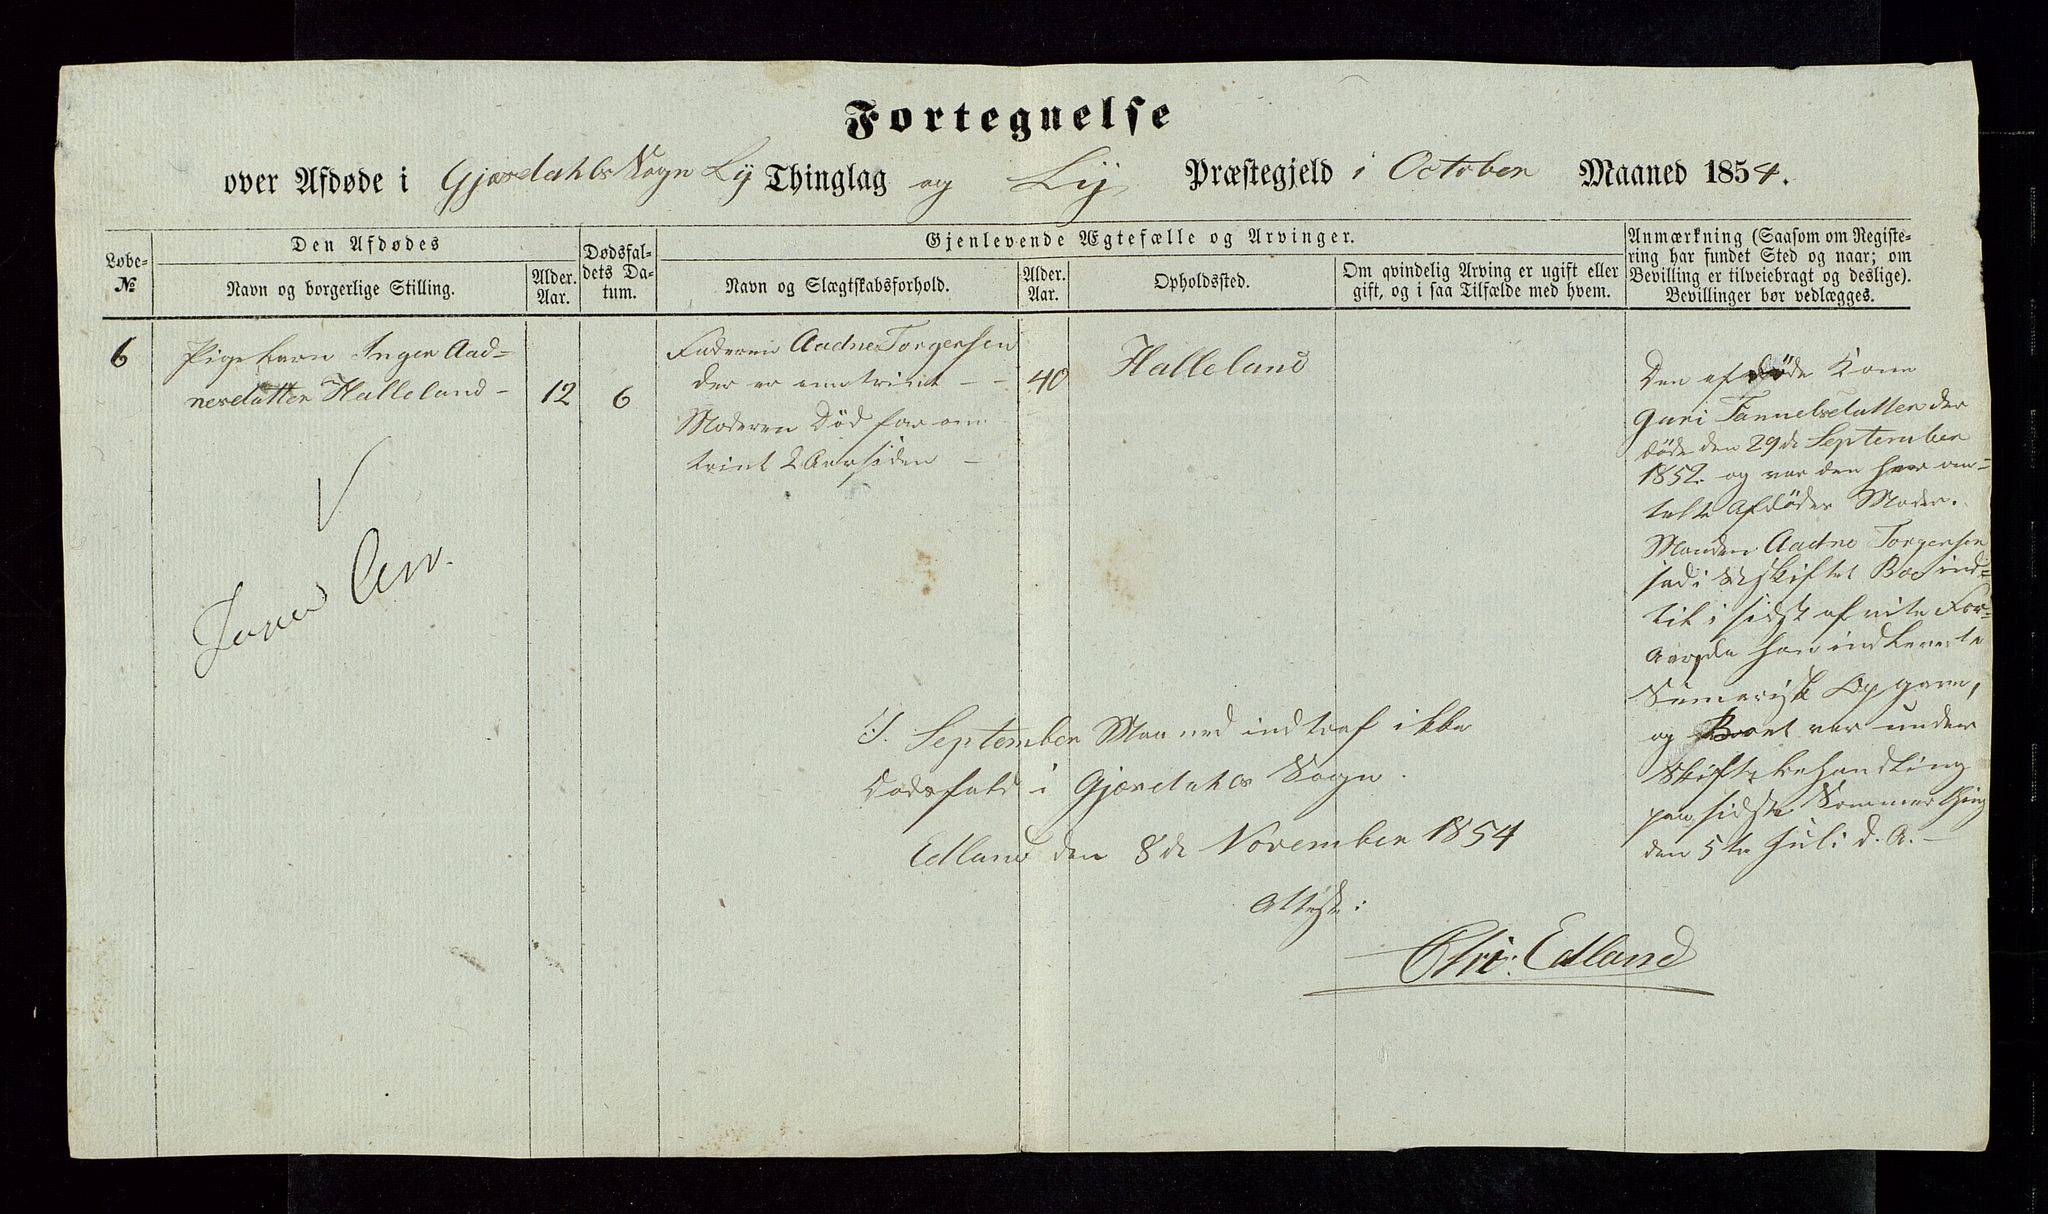 Fortegnelse
over Afdøde i Gjæsdahls Sogn Lÿ Thinglag og Lÿ Præstegjeld i October Maaned 1854.
Løbe-
№
Den Afdødes
Navn og borgerlige Stilling.
Alder.
Aar.
Dødsfal-
dets Da-
tum.
Gjenlevende Ægtefælle og Arvinger.
Navn og Slægtskabsforhold.
Alder.
Aar.
Opholdssted.
Om qvindelig Arving er ugift eller
gift, og i saa Tilfælde med hvem.
Anmærkning (Saasom om Registe-
ring har fundet Sted og naar; om
Bevilling er tilveiebragt og deslige).
Bevillinger bør vedlægges.
6
Pigebarn Inger Aad-
nesdatter Halleland -
12
6
Faderen Aadne Torgersen
der er omtrint - -
Moderen Død for om
trint 2 Aar siden -
40
Halleland
Den afdøde Kone
Guri Tannelsdatter der
døde den 29de September
1852. og var den her om-
talte Afdødes Moder.
Manden Aadne Torgersen
sad i uskiftet Boe ind-
til i sidst af vite For-
Aar da han indleverte
Sumarisk Opgave,
og Boet var under
Skiftebehandling
paa sidste Sommerthing
den 5te Juli d. A. -
Ingen Arv.
I September Maaned indtraf ikke
Dødsfald i Gjæsdahls Sogn.
Edland den 8de November 1854
Attest:
Chri: Edland